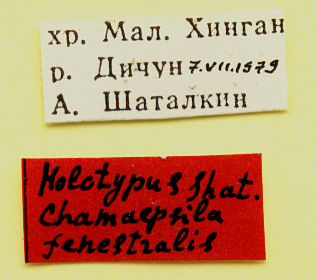 хр. Мал. Хинган
р. Дичун 7.VII.1979
А. Шаталкин
Holotypus Shat.
Chamaepsila
fenestralis